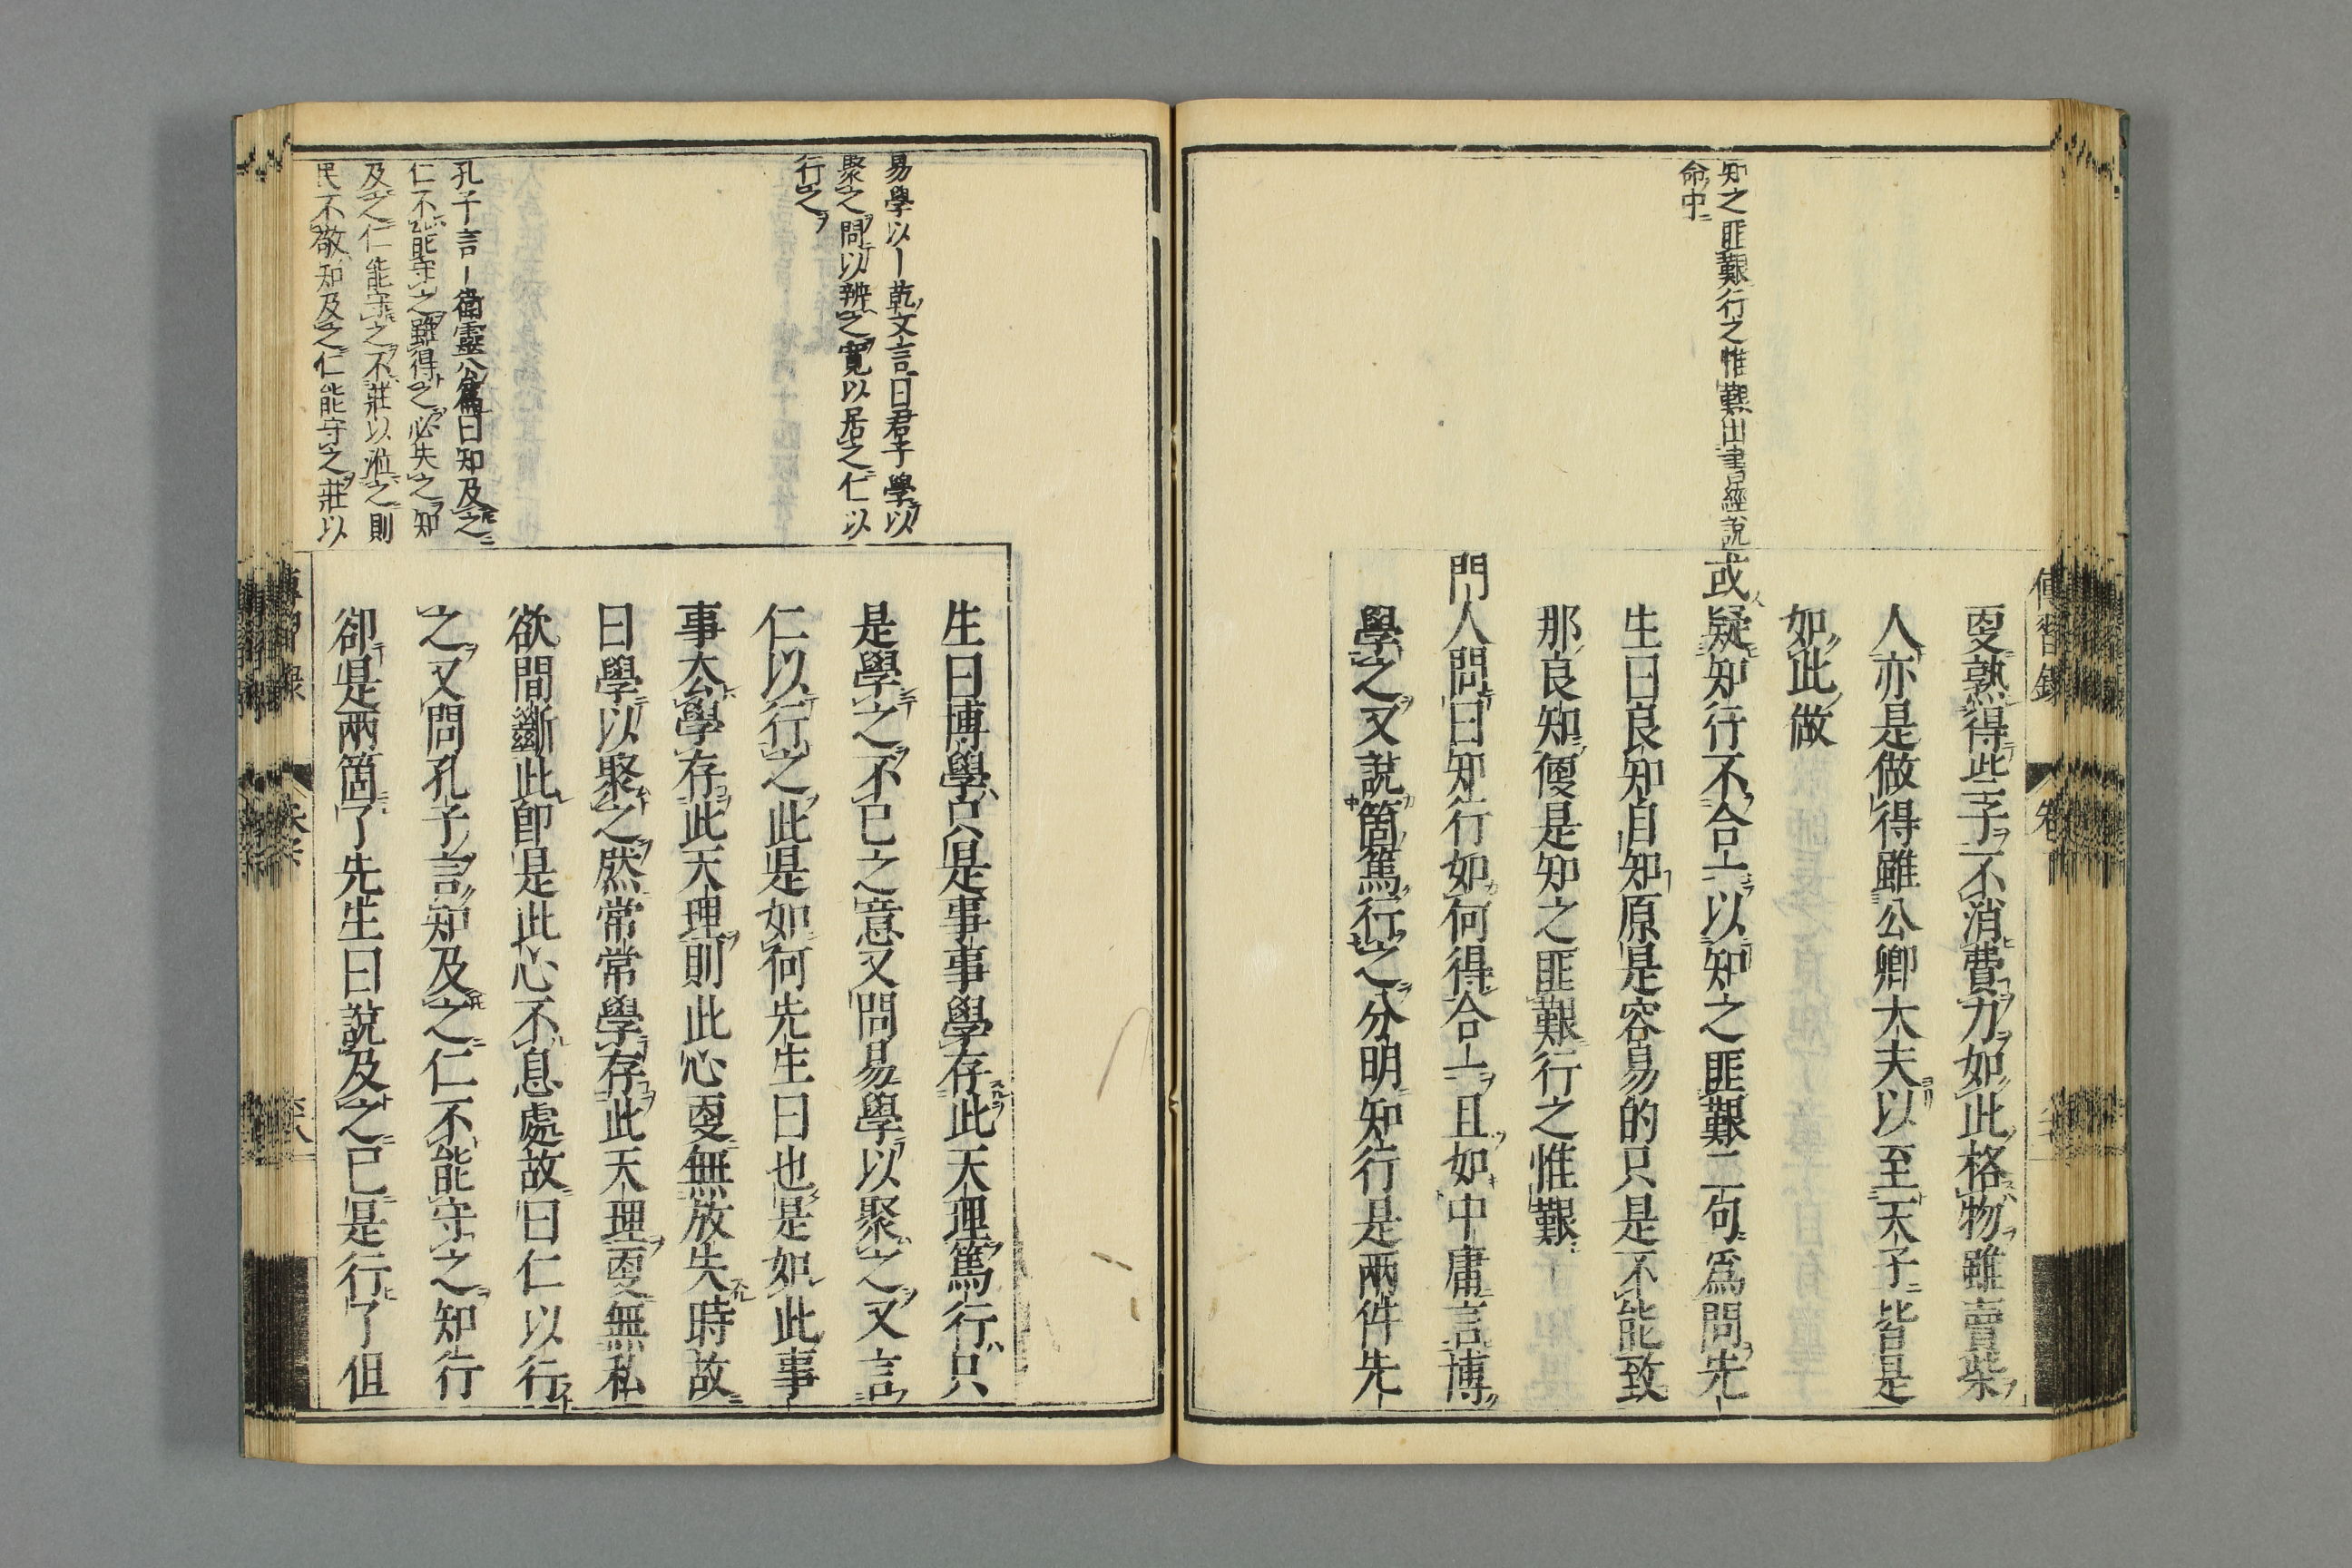 知之匪艱行之惟艱出書經說
命中
㪅熟得些子不消費力如此格物雖賣柴
人亦是做得雖公卿大夫以至天子皆是
如此做
或疑知行不合一以知之匪艱二句爲問先
生曰良知自知原是容易的只是不能致
那良知便是知之匪艱行之惟艱
門人問曰知行如何得合一且如中庸言博
學之又說箇篤行之分明知行是兩件先
易學以—乾文言曰君子學以
聚之問以辨之寬以居之仁以
行之
孔子言—衛靈公篇曰知及之
仁不能守之雖得之必失之知
及之仁能守之不莊以涖之則
民不敬知及之仁能守之莊以
生曰博學只是事事學存此天理篤行只
是學之不已之意又問易學以聚之又言
仁以行之此是如何先生曰也是如此事
事去學存此天理則此心㪅無放失時故
曰學以聚之然常常學存此天理㪅無私
欲間斷此卽是此心不息處故曰仁以行
之又問孔子言知及之仁不能守之知行
卻是兩箇了先生曰說及之已是行了但